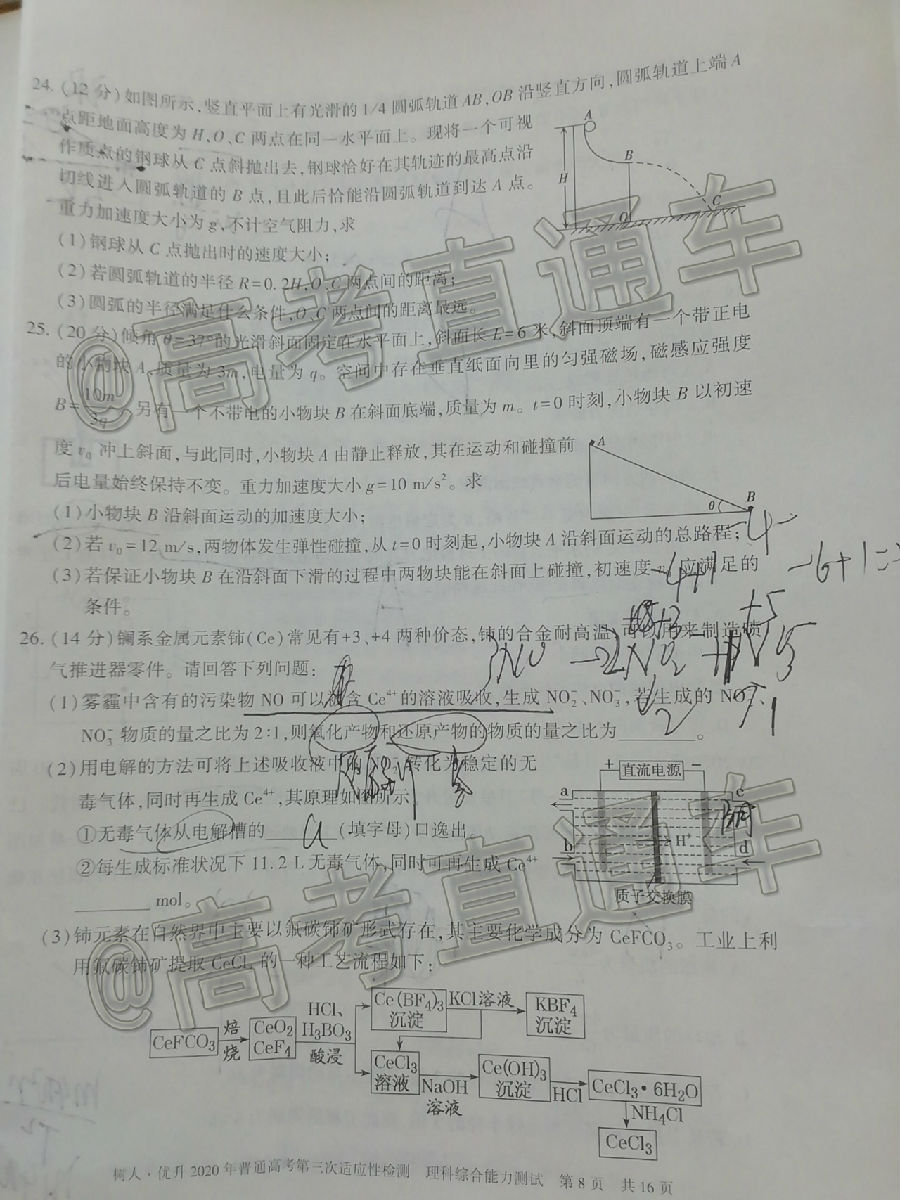 24. (12分)如图所示,竖直平面上有光滑的1/4圆弧轨道AB、OB沿竖直方向,圆弧轨道上端A
点距地面高度为H,O、C两点在同一水平面上。现将一个可视
作质点的钢球从C点斜抛出去,钢球恰好在其轨迹的最高点沿
切线进入圆弧轨道的B点,且此后恰能沿圆弧轨道到达A点。
重力加速度大小为g,不计空气阻力,求
(1)钢球从C点抛出时的速度大小;
(2)若圆弧轨道的半径R=0.2H,O、C两点间的距离;
(3)圆弧的半径满足什么条件,O、C两点间的距离最远。
A
H
B
O
C
25. (20分)倾角θ=37°的光滑斜面固定在水平面上,斜面长L=6米,斜面顶端有一个带正电
的小物块A,质量为3m,电量为q。空间中存在垂直纸面向里的匀强磁场,磁感应强度
B=10m/3q。另有一个不带电的小物块B在斜面底端,质量为m。t=0时刻,小物块B以初速
度v₀冲上斜面,与此同时,小物块A由静止释放,其在运动和碰撞前
后电量始终保持不变。重力加速度大小g=10 m/s²。求
(1)小物块B沿斜面运动的加速度大小;
(2)若v₀=12 m/s,两物体发生弹性碰撞,从t=0时刻起,小物块A沿斜面运动的总路程;
(3)若保证小物块B在沿斜面下滑的过程中两物块能在斜面上碰撞,初速度 应满足的
条件。
A
θ
B
26. (14分)镧系金属元素铈(Ce)常见有+3、+4两种价态,铈的合金耐高温,可 用来制造喷
气推进器零件。请回答下列问题:
(1)雾霾中含有的污染物NO可以被含Ce⁴⁺的溶液吸收,生成NO₂⁻、NO₃⁻,若生成的NO₂⁻、
NO₃⁻物质的量之比为2∶1,则氧化产物和还原产物的物质的量之比为________。
(2)用电解的方法可将上述吸收液中的NO₂⁻转化为稳定的无
毒气体,同时再生成Ce⁴⁺,其原理如图所示。
①无毒气体从电解槽的 a (填字母)口逸出。
②每生成标准状况下11.2 L无毒气体,同时可再生成Ce⁴⁺
________ mol。
+ 直流电源 −
a
c
b
H⁺
d
质子交换膜
(3)铈元素在自然界中主要以氟碳铈矿形式存在,其主要化学成分为CeFCO₃。工业上利
用氟碳铈矿提取CeCl₃的一种工艺流程如下:
CeFCO₃
焙烧
CeO₂
CeF₄
HCl、
H₃BO₃
酸浸
Ce(BF₄)₃
沉淀
KCl溶液
KBF₄
沉淀
CeCl₃
溶液
NaOH
溶液
Ce(OH)₃
沉淀
HCl
CeCl₃·6H₂O
NH₄Cl
CeCl₃
树人·优升2020年普通高考第三次适应性检测 理科综合能力测试 第8页 共16页
@高考直通车
@高考直通车